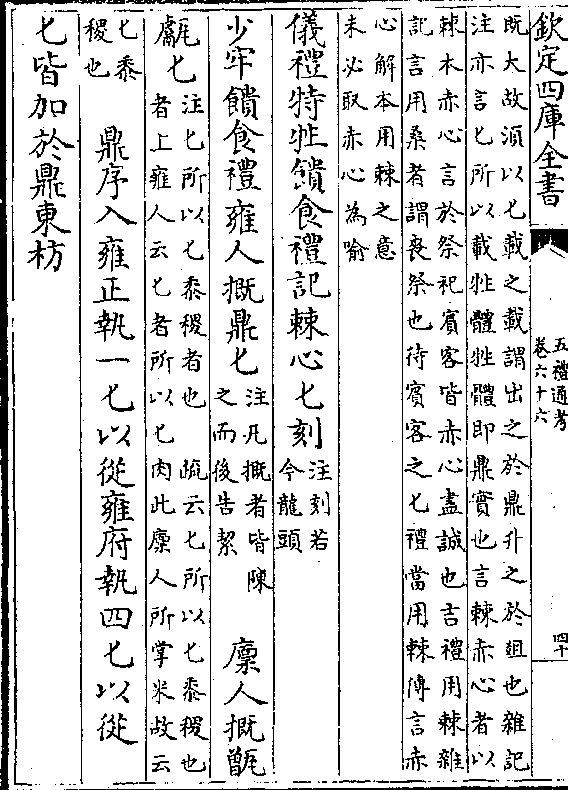 欽定四庫全書
五禮通考
卷六十六
四十
既大故須以匕載之載謂出之於鼎升之於俎也雜記
注亦言匕所以載牲體牲體即鼎實也言棘赤心者以
棘木赤心言於祭祀賓客皆赤心盡誠也吉禮用棘雜
記言用桑者謂喪祭也待賓客之匕禮當用棘傳言赤
心解本用棘之意
未必取赤心為喻
儀禮特牲饋食禮記棘心匕刻
注刻若
今龍頭
少牢饋食禮雍人摡鼎匕
注凡摡者皆陳
之而後告絜
廩人摡甑
甗匕
注匕所以匕黍稷者也
疏云匕所以匕黍稷也
者上雍人云匕者所以匕肉此廩人所掌米故云
匕黍
稷也
鼎序入雍正執一匕以從雍府執四匕以從
匕皆加於鼎東枋